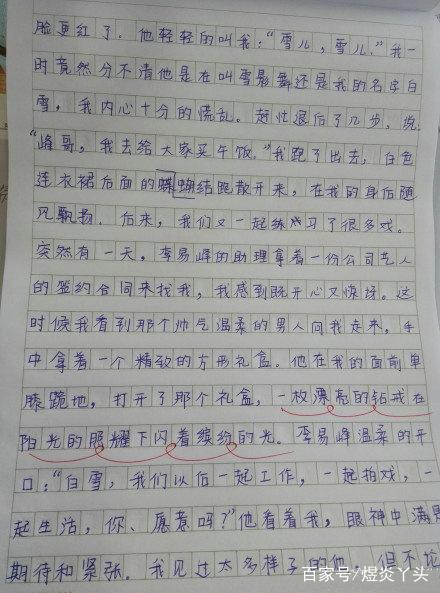 脸更红了。他轻轻的叫我:“雪儿,雪儿。”我一
时竟然分不清他是在叫雪影舞还是我的名字白
雪,我内心十分的慌乱。赶忙退后了几步,说
“峰哥,我去给大家买午饭。”我跑了出去,白色
连衣裙后面的蝴蝶结跑散开来,在我的身后随
风飘扬。后来,我们又一起练习了很多戏。
突然有一天,李易峰的助理拿着一份公司艺人
的签约合同来找我,我感到既开心又惊讶。这
时候我看到那个帅气温柔的男人向我走来,手
中拿着一个精致的方形礼盒。他在我的面前单
膝跪地,打开了那个礼盒,一枚漂亮的钻戒在
阳光的照耀下闪着缤纷的光。李易峰温柔的开
口:“白雪,我们以后一起工作,一起拍戏,一
起生活,你、愿意吗?”他看着我,眼神中满是
期待和紧张。我见过太多样子的他,但不论
百家号/煜炎丫头